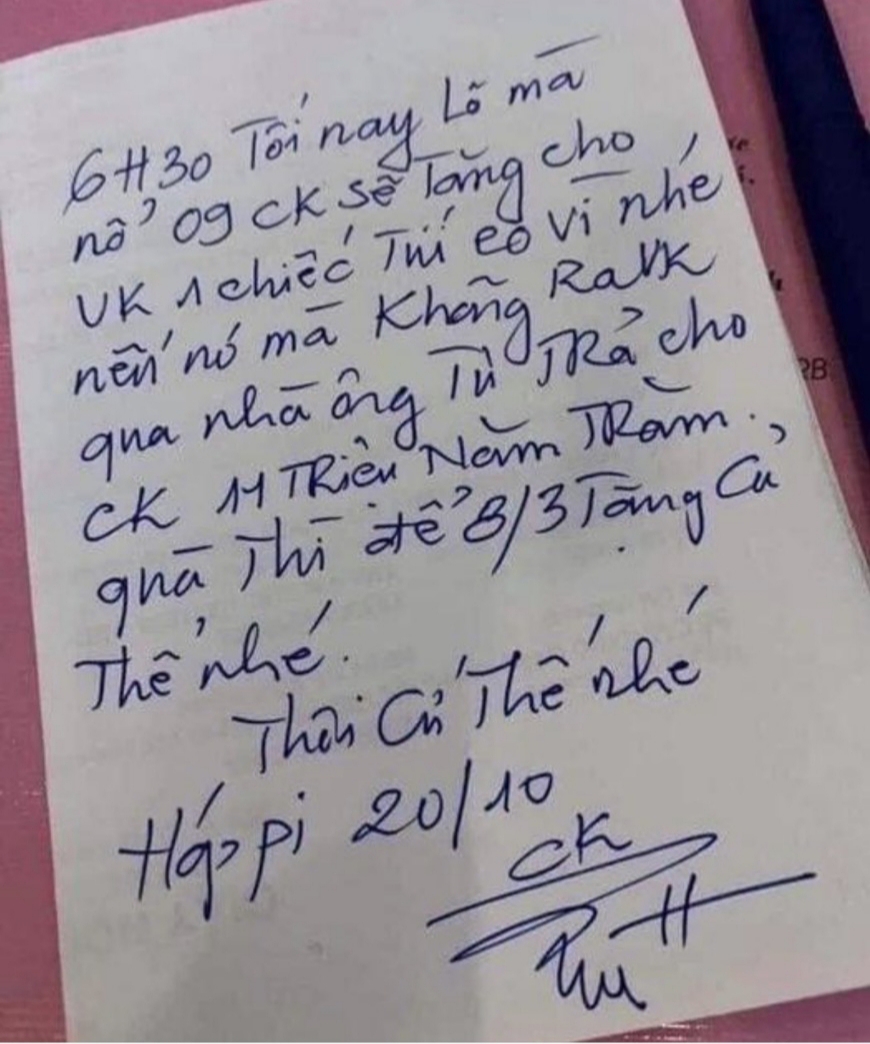 6H30 Tối nay Lỡ mà
nổ 09 CK sẽ Tặng cho
VK 1 chiếc Túi eo Vì nhé
nến nó mà Không Ra VK
qua nhà ông Tú TRả cho
CK 11 TRiệu Năm TRăm.
quà Thì để 8/3 Tặng Cả
Thể nhé.
Thôi Cứ Thế nhé
Háp pi 20/10
CK